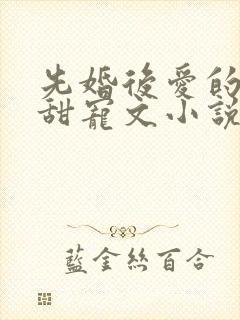 先婚後愛的
甜寵文小說
藍金絲百合